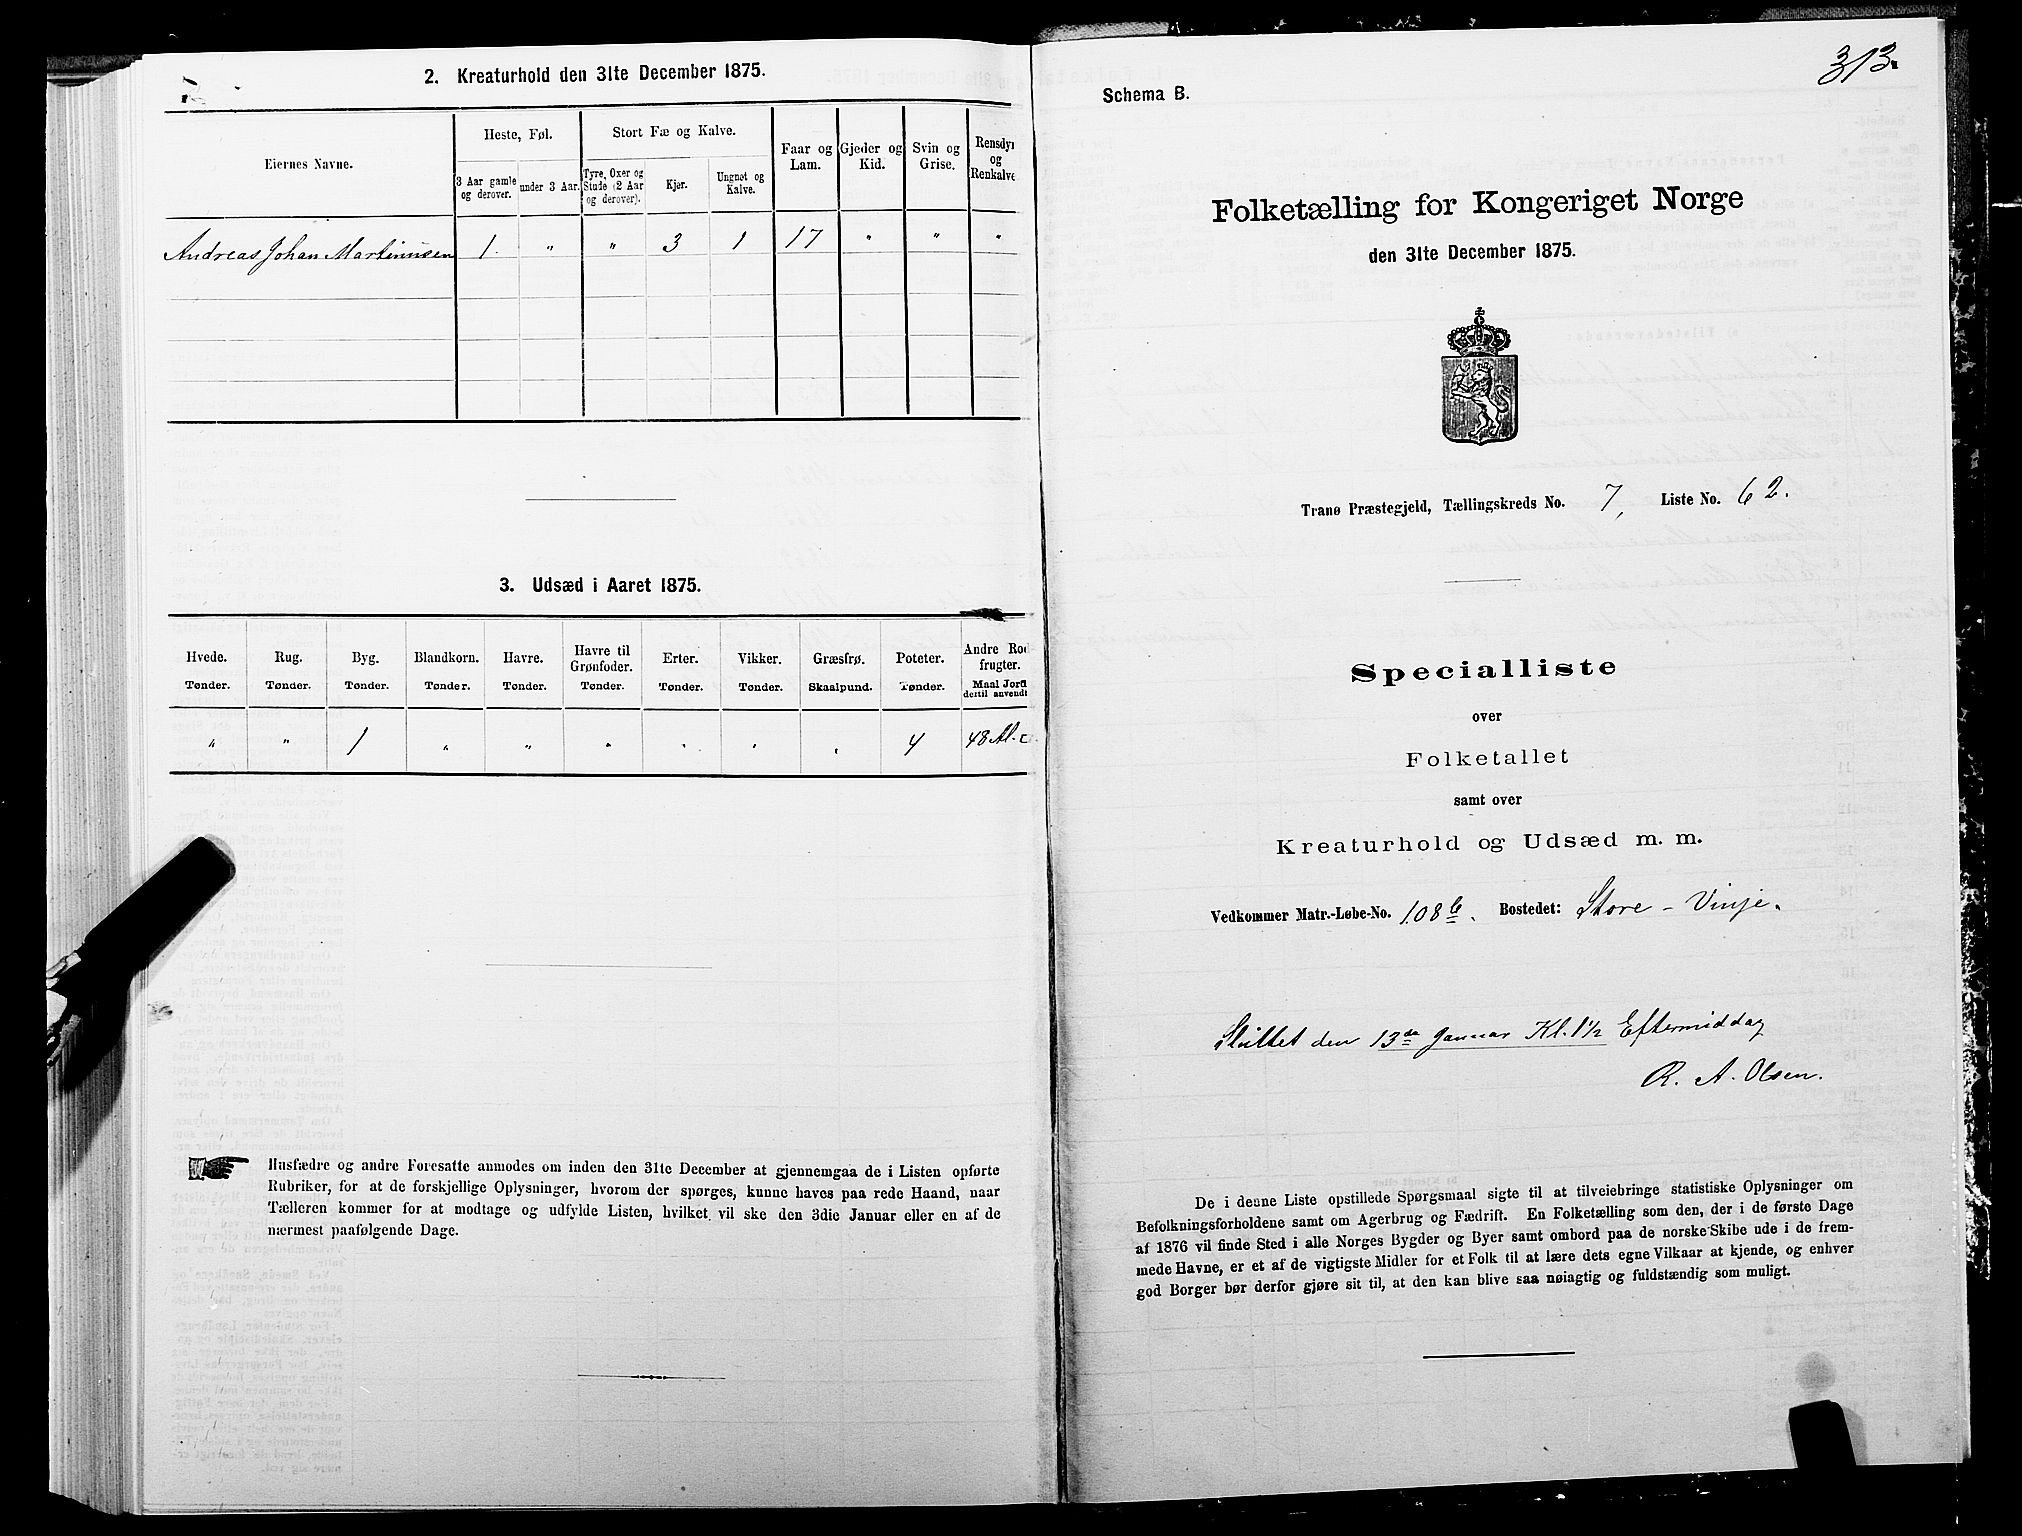 2. Kreaturhold den 31te December 1875.
Eiernes Navne.
Heste, Føl.
Stort Fæ og Kalve.
Faar og Lam.
Gjeder og Kid.
Svin og Grise.
Rensdyr og Renkalve
3 Aar gamle og derover.
under 3 Aar.
Tyre, Oxer og Stude (2 Aar og derover).
Kjør.
Ungnøt og Kalve.
Andreas Johan Martinusen 1. " " 3 1 17 " " "
3. Udsæd i Aaret 1875.
Hvede. Rug. Byg. Blandkorn. Havre. Havre til Grønfoder. Erter. Vikker. Græsfrø. Poteter. Andre Rod frugter.
Tønder. Tønder. Tønder. Tønder. Tønder. Tønder. Tønder. Tønder. Skaalpund. Tønder. Maal Jord dertil anvendt
" " 1 " " " " " " 4 48 Al.
Husfædre og andre Foresatte anmodes om inden den 31te December at gjennemgaa de i Listen opførte
Rubriker, for at de forskjellige Oplysninger, hvorom der spørges, kunne haves paa rede Haand, naar
Tælleren kommer for at modtage og udfylde Listen, hvilket vil ske den 3die Januar eller en af de
nærmest paafølgende Dage.
313.
Schema B.
Folketælling for Kongeriget Norge
den 31te December 1875.
Tranø Præstegjeld, Tællingskreds No. 7, Liste No. 62.
Specialliste
over
Folketallet
samt over
Kreaturhold og Udsæd m. m.
Vedkommer Matr.-Løbe-No. 108 b. Bostedet: Store - Vinje.
Sluttet den 13de Januar Kl. 1 1/2 Eftermiddag
R. A. Olsen.
De i denne Liste opstillede Spørgsmaal sigte til at tilveiebringe statistiske Oplysninger om
Befolkningsforholdene samt om Agerbrug og Fædrift. En Folketælling som den, der i de første Dage
af 1876 vil finde Sted i alle Norges Bygder og Byer samt ombord paa de norske Skibe ude i de frem-
mede Havne, er et af de vigtigste Midler for et Folk til at lære dets egne Vilkaar at kjende, og enhver
god Borger bør derfor gjøre sit til, at den kan blive saa nøiagtig og fuldstændig som muligt.